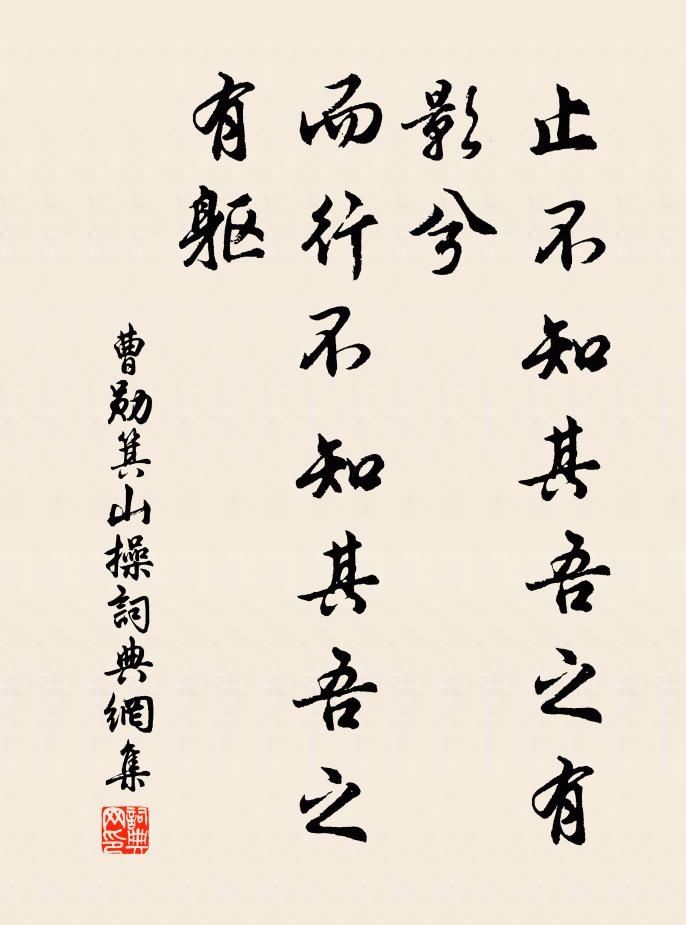 止不知其吾之有
影兮
而行不知其吾之
有躯
曹勋箕山操詞典網集
詞典网印